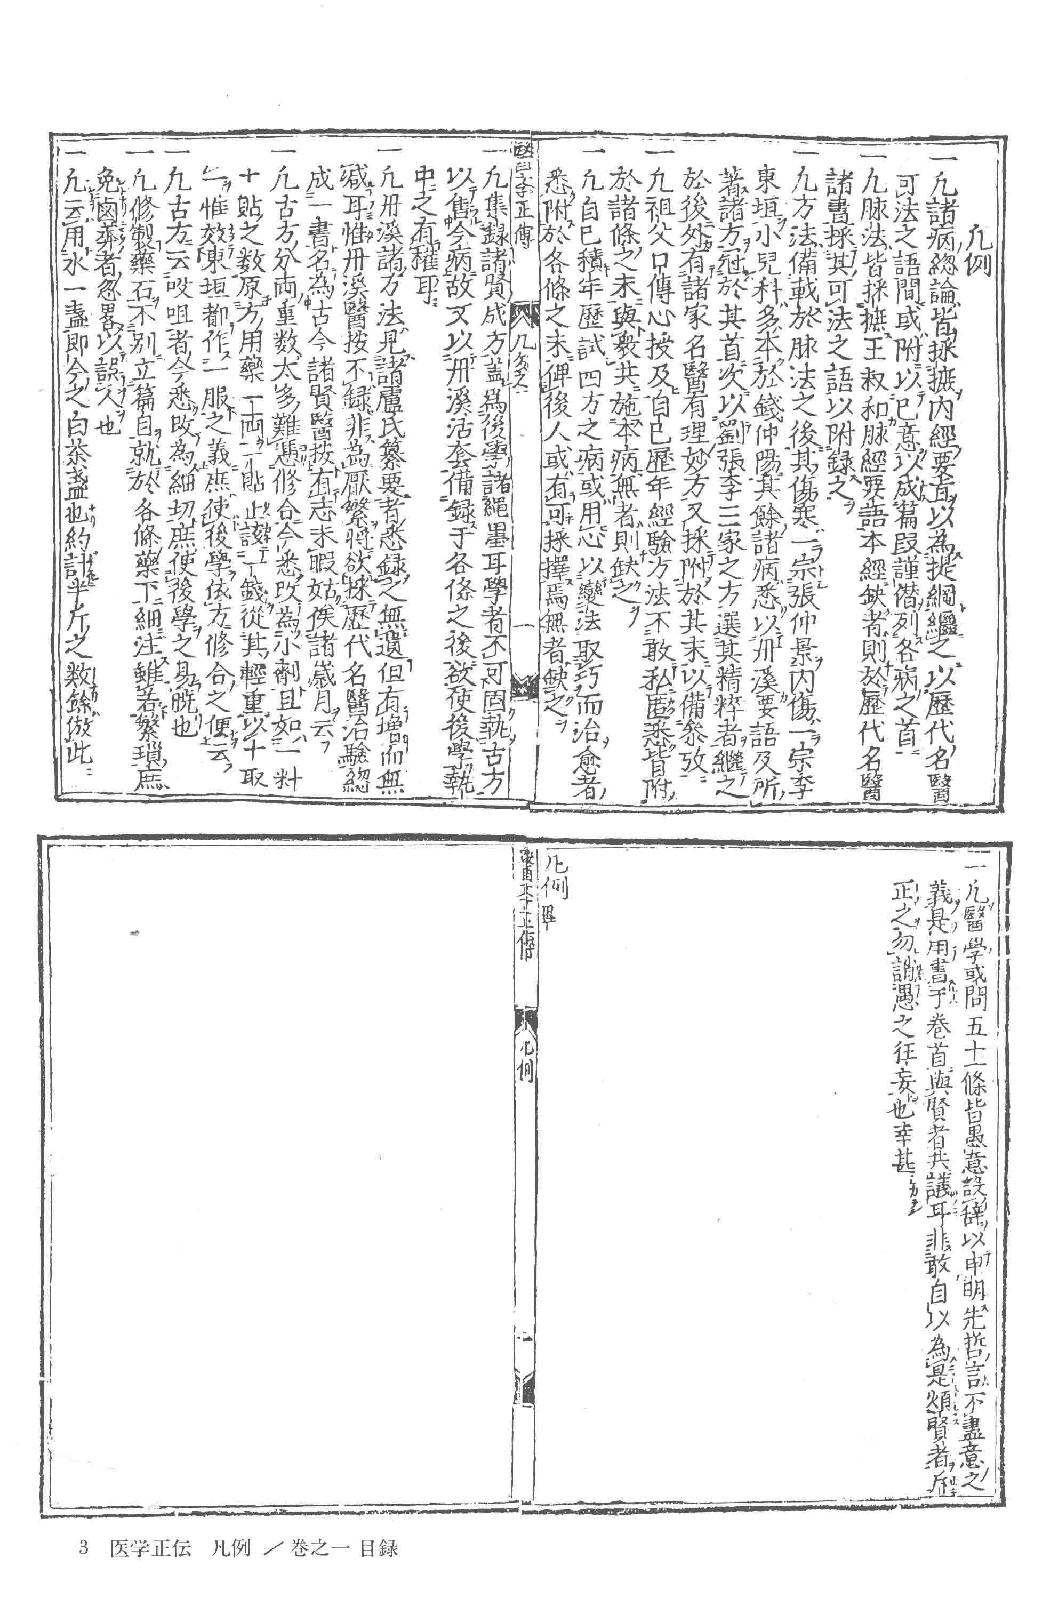 凡例
一凡諸病總論皆採摭内經要旨以為提綱繼之以歴代名醫
可法之語間或附以已意以成篇段謹僣列各病之首
一凡脉法皆採摭王叔和脉經要語本經缺者則於歴代名醫
諸書採其可法之語以附録之
一凡方法備載於脉法之後其傷寒一宗張仲景内傷一宗李
東垣小兒科多本於錢仲陽其餘諸病悉以丹溪要語及所
著諸方冠於其首次以劉張李三家之方選其精粹者繼之
於後外有諸家名醫有理妙方又採附於其末以備叅攷
一凡祖父口傳心授及自已歴年經驗方法不敢私匿悉皆附
於諸條之末與衆共施本病無者則缺之
一凡自已積年歴試四方之病或用心以變法取巧而治愈者
悉附於各條之末俾後人或有可採擇焉無者缺之
醫學正傳 凡例 一
一凡集録諸賢成方盖為後學諸繩墨耳學者不可固執古方
以售今病故又以丹溪活套備録于各條之後欲使後學執
中之有權耳
一凡丹溪諸方法見諸盧氏纂要者悉録之無遺但有増而無
减耳惟丹溪醫按不録非為厭繁將欲採歴代名醫治驗総
成一書名為古今諸賢醫按有志未暇姑俟諸歳月云
一凡古方分両重数太多難慿修合今悉攷為小劑且如一料
十貼之数原方用藥一両一貼止該一錢從其輕重以十取
一惟效東垣都作一服之義庶使後學依方修合之便云
一凡古方云㕮咀者今悉攺為細切庶使後學之易暁也
一凡修製藥石不別立篇目就於各條藥下細注雖若繁瑣庶
免鹵莽者忽畧以誤人也
一凡云用水一盞即今之白茶盞也約計半斤之数餘倣此
一凡醫學或問五十一條皆愚意設辭以申明先哲言不盡意之
義是用書于巻首與賢者共議耳非敢自以為是煩賢者斤
正之勿誚愚之狂妄也幸甚
凡例畢
醫學正傳 凡例
3 医学正伝 凡例 ／ 巻之一 目録